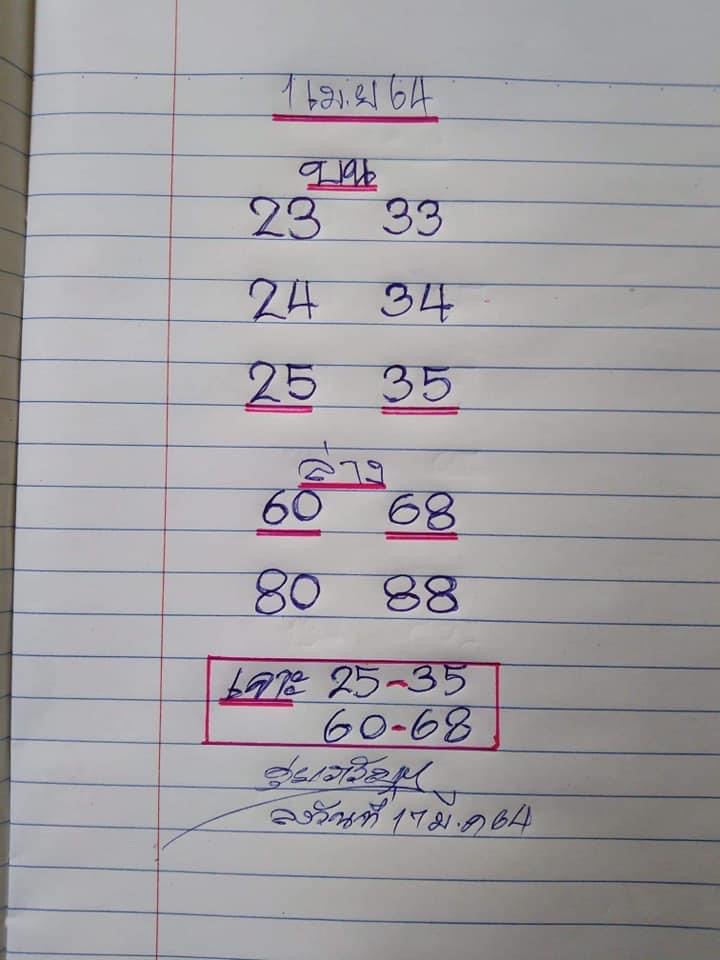 1 เม.ย 64
บน
23 33
24 34
25 35
ล่าง
60 68
80 88
เจาะ 25-35
60-68
ลงวันที่ 17 มี.ค 64